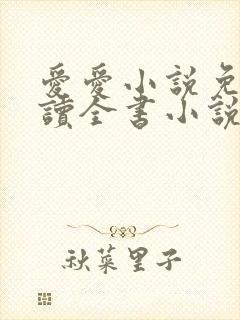 愛愛小說免
讀全書小說
秋菜里子